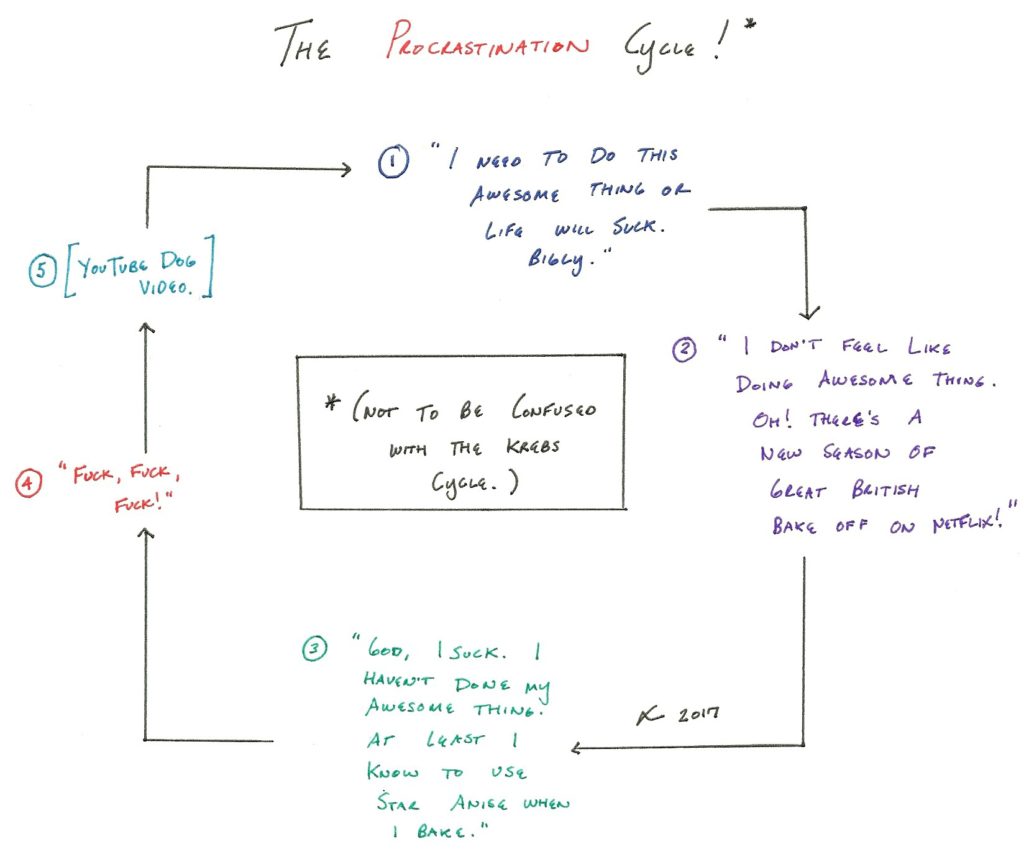 THE PROCRASTINATION CYCLE!*
① "I NEED TO DO THIS
AWESOME THING OR
LIFE WILL SUCK.
BIGLY."
② "I DON'T FEEL LIKE
DOING AWESOME THING.
OH! THERE'S A
NEW SEASON OF
GREAT BRITISH
BAKE OFF ON NETFLIX!"
③ "GOD, I SUCK. I
HAVEN'T DONE MY
AWESOME THING.
AT LEAST I
KNOW TO USE
STAR ANISE WHEN
I BAKE."
④ "FUCK, FUCK,
FUCK!"
⑤ [YOUTUBE DOG
VIDEO.]
* (NOT TO BE CONFUSED
WITH THE KREBS
CYCLE.)
2017